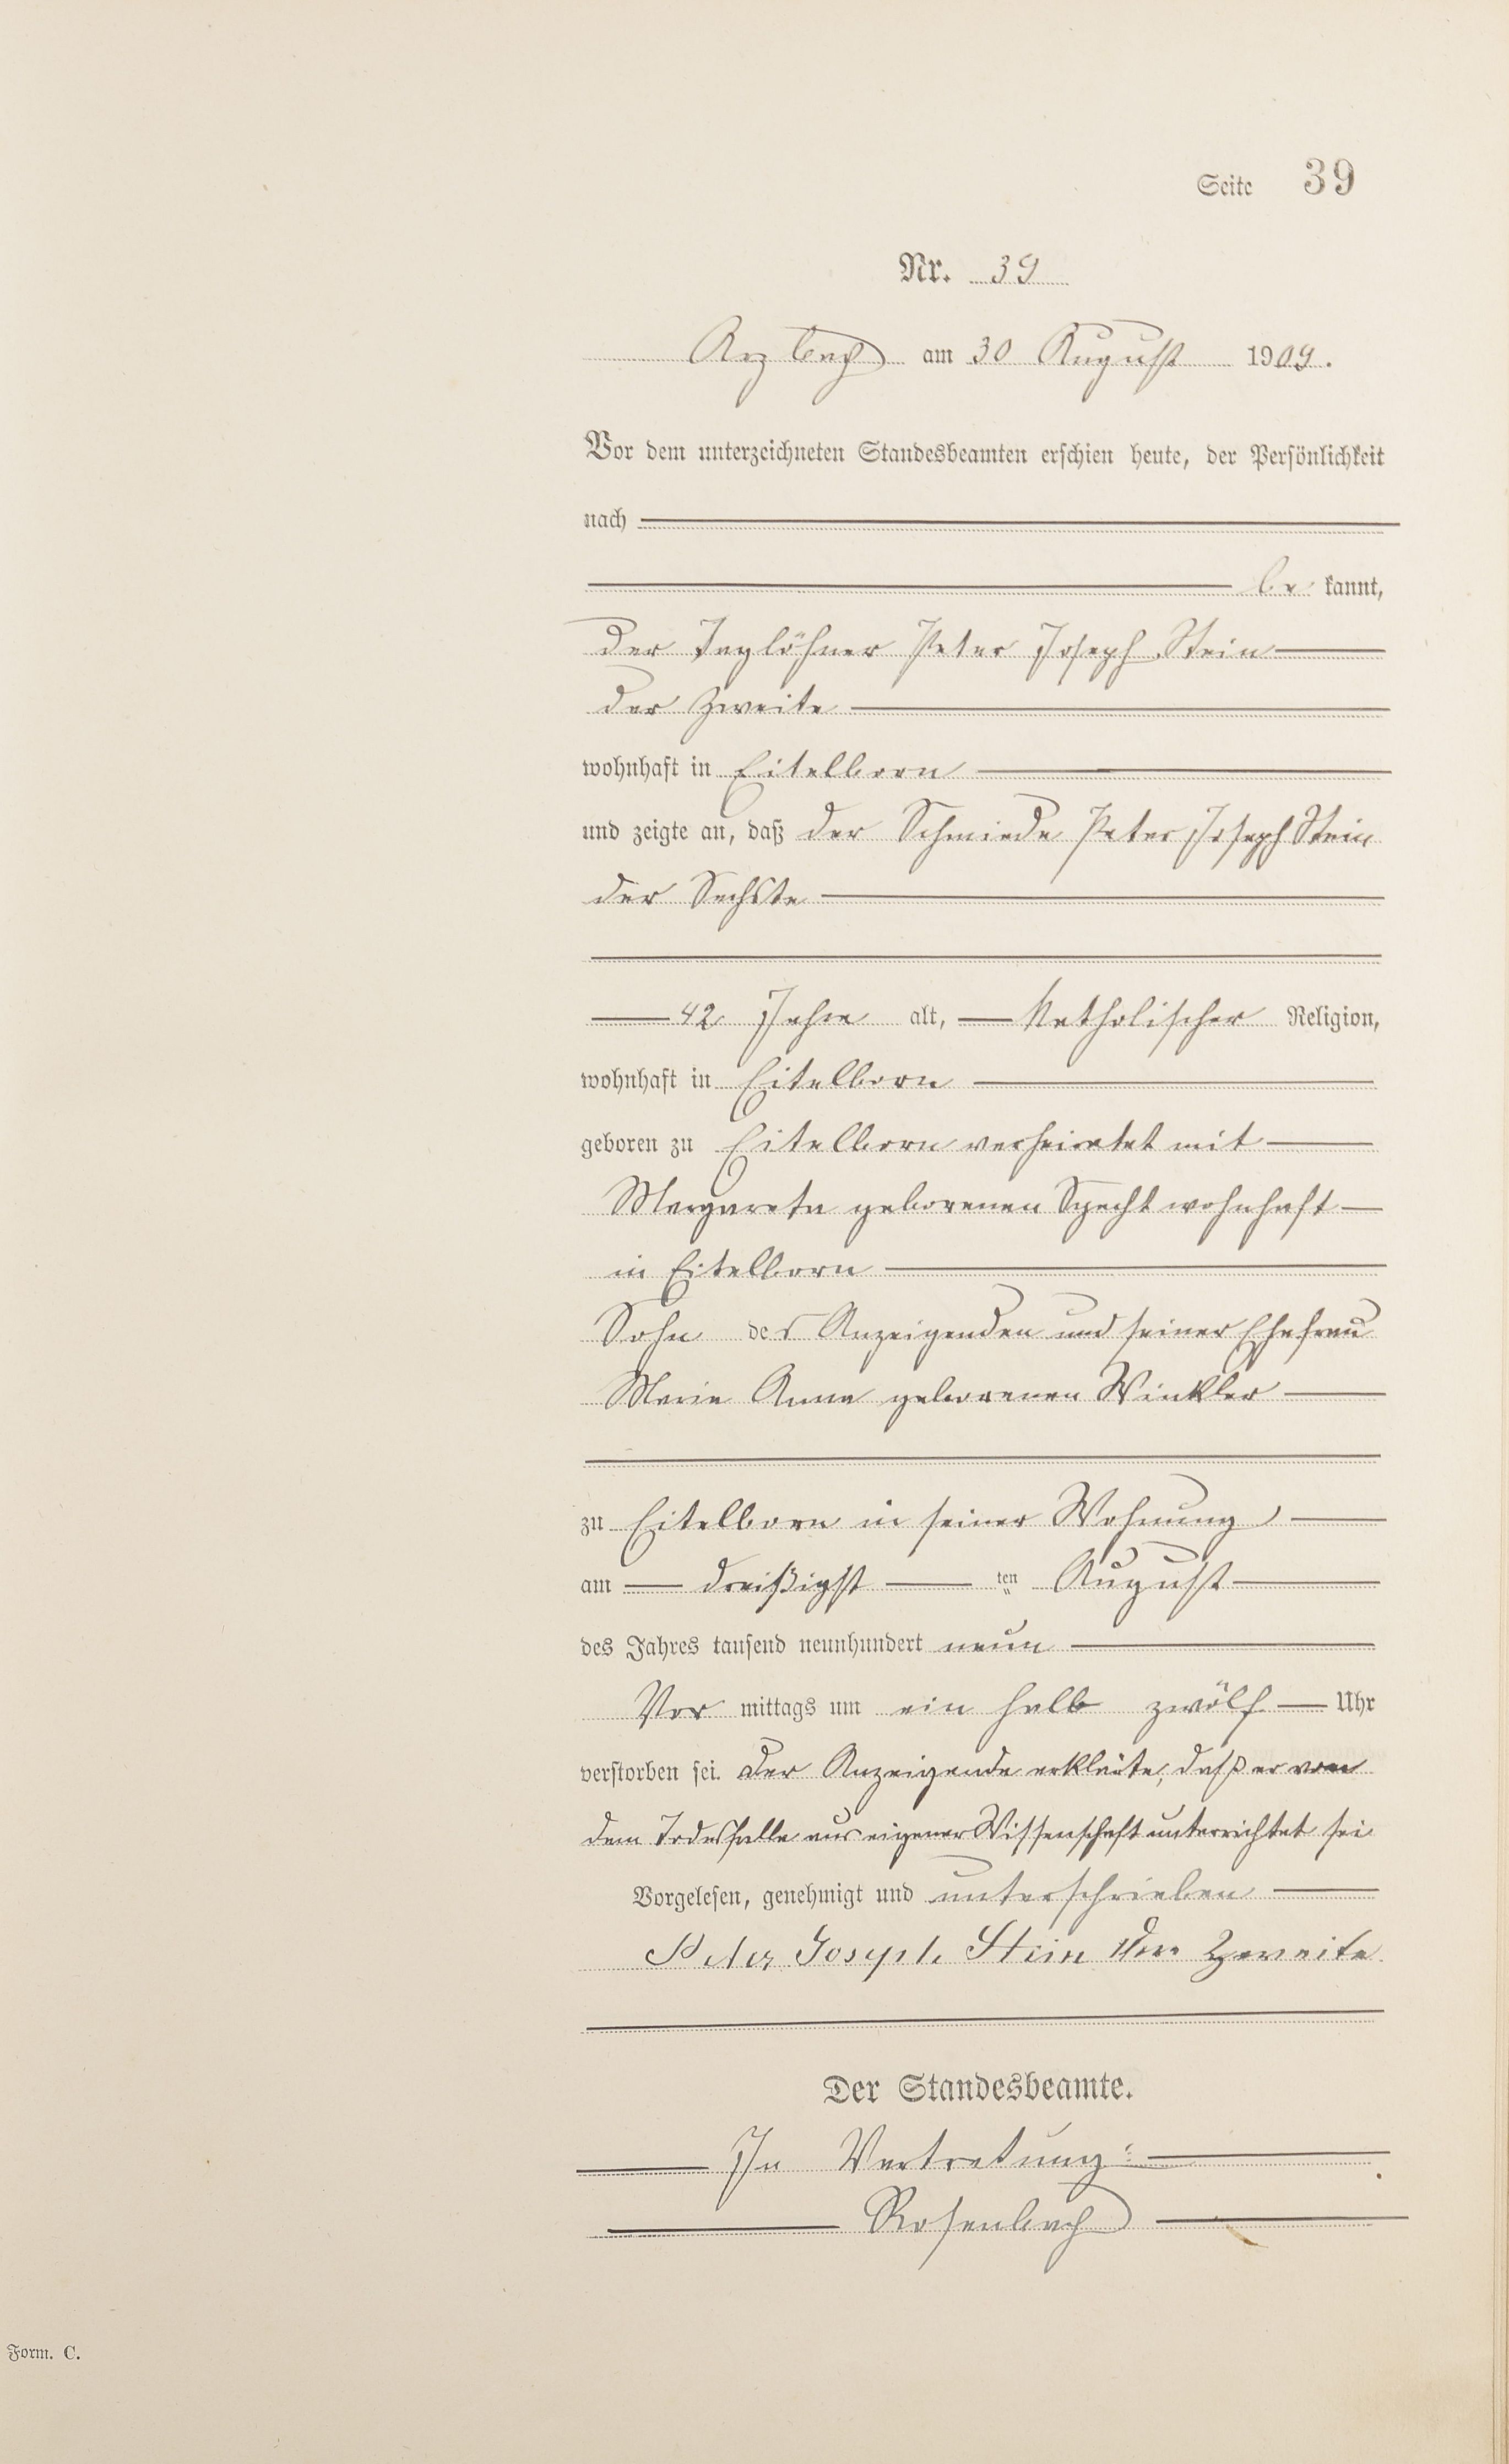 Seite 39
Nr. 39
Arzbach am 30 August 1909.
Vor dem unterzeichneten Standesbeamten erschien heute, der Persönlichkeit
nach
be kannt,
der Taglöhner Peter Joseph Stein
der Zweite
wohnhaft in Eitelborn
und zeigte an, daß der Schmiede Peter Joseph Stein
der Sechste
42 Jahre alt, Katholischer Religion,
wohnhaft in Eitelborn
geboren zu Eitelborn verheiratet mit
Margareta geborenen Specht wohnhaft
in Eitelborn
Sohn des Anzeigenden und seiner Ehefrau
Maria Anna geborenen Winkler
zu Eitelborn in seiner Wohnung
am dreißigst ten August
des Jahres tausend neunhundert neun
Vor mittags um ein halb zwölf Uhr
verstorben sei. Der Anzeigende erklärte, daß er von
dem Todesfalle aus eigener Wissenschaft unterrichtet sei
Vorgelesen, genehmigt und unterschrieben
Peter Joseph Stein der Zweite
Der Standesbeamte.
In Vertretung:
Rosenbach
Form. C.